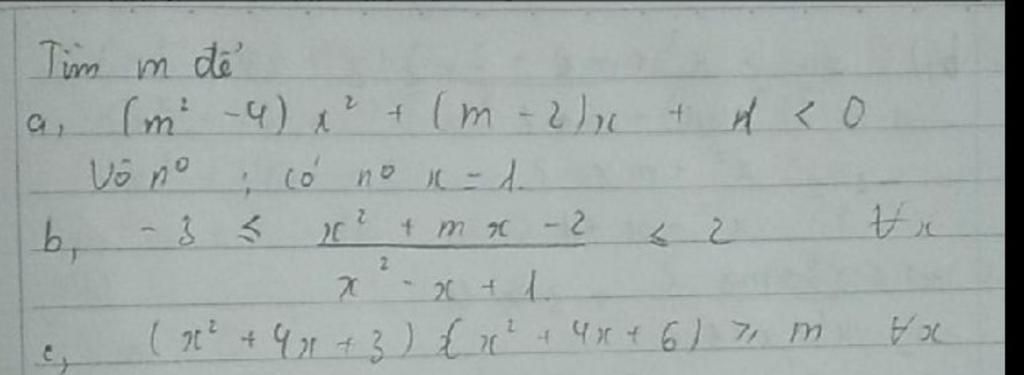 Tìm m để
a, (m² - 4) x² + (m - 2)x + 1 < 0
Vô n⁰ ; có n⁰ x = 1.
b, - 3 ≤ \frac{x² + m x - 2}{x² - x + 1} ≤ 2 ∀x
c, (x² + 4x + 3) (x² + 4x + 6) ≥ m ∀x